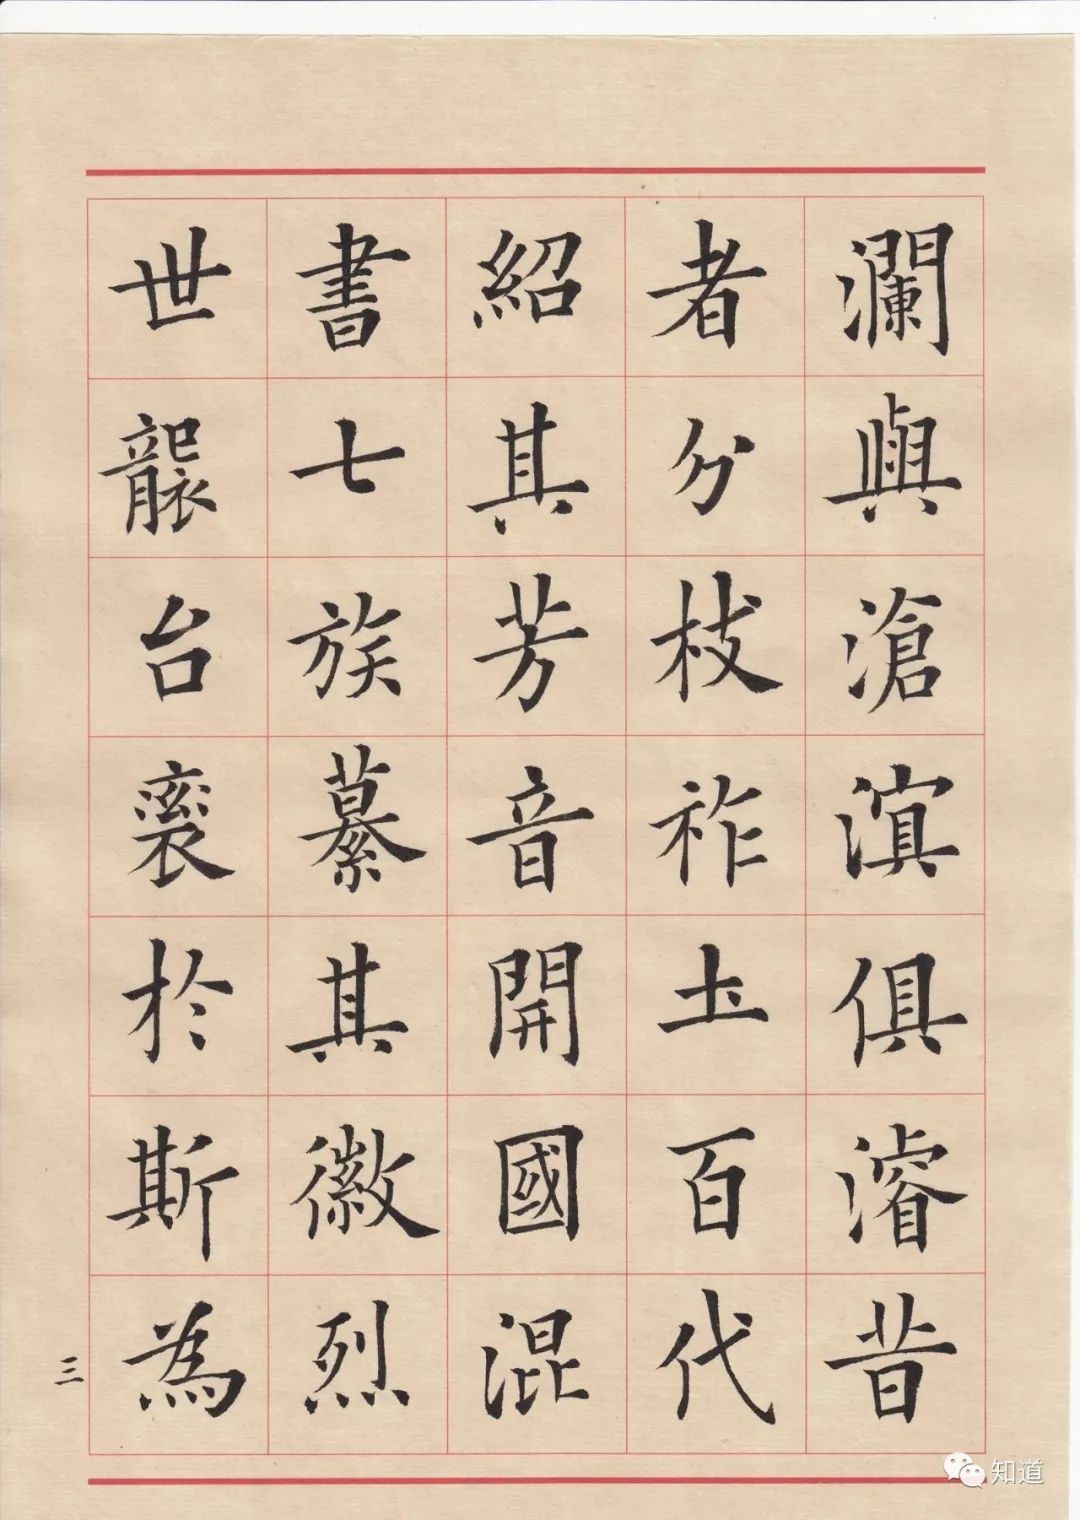 瀾與滄滇俱濬昔
者分枝祚土百代
紹其芳音開國混
書七族纂其徽烈
世襲台袞於斯為
三
知道